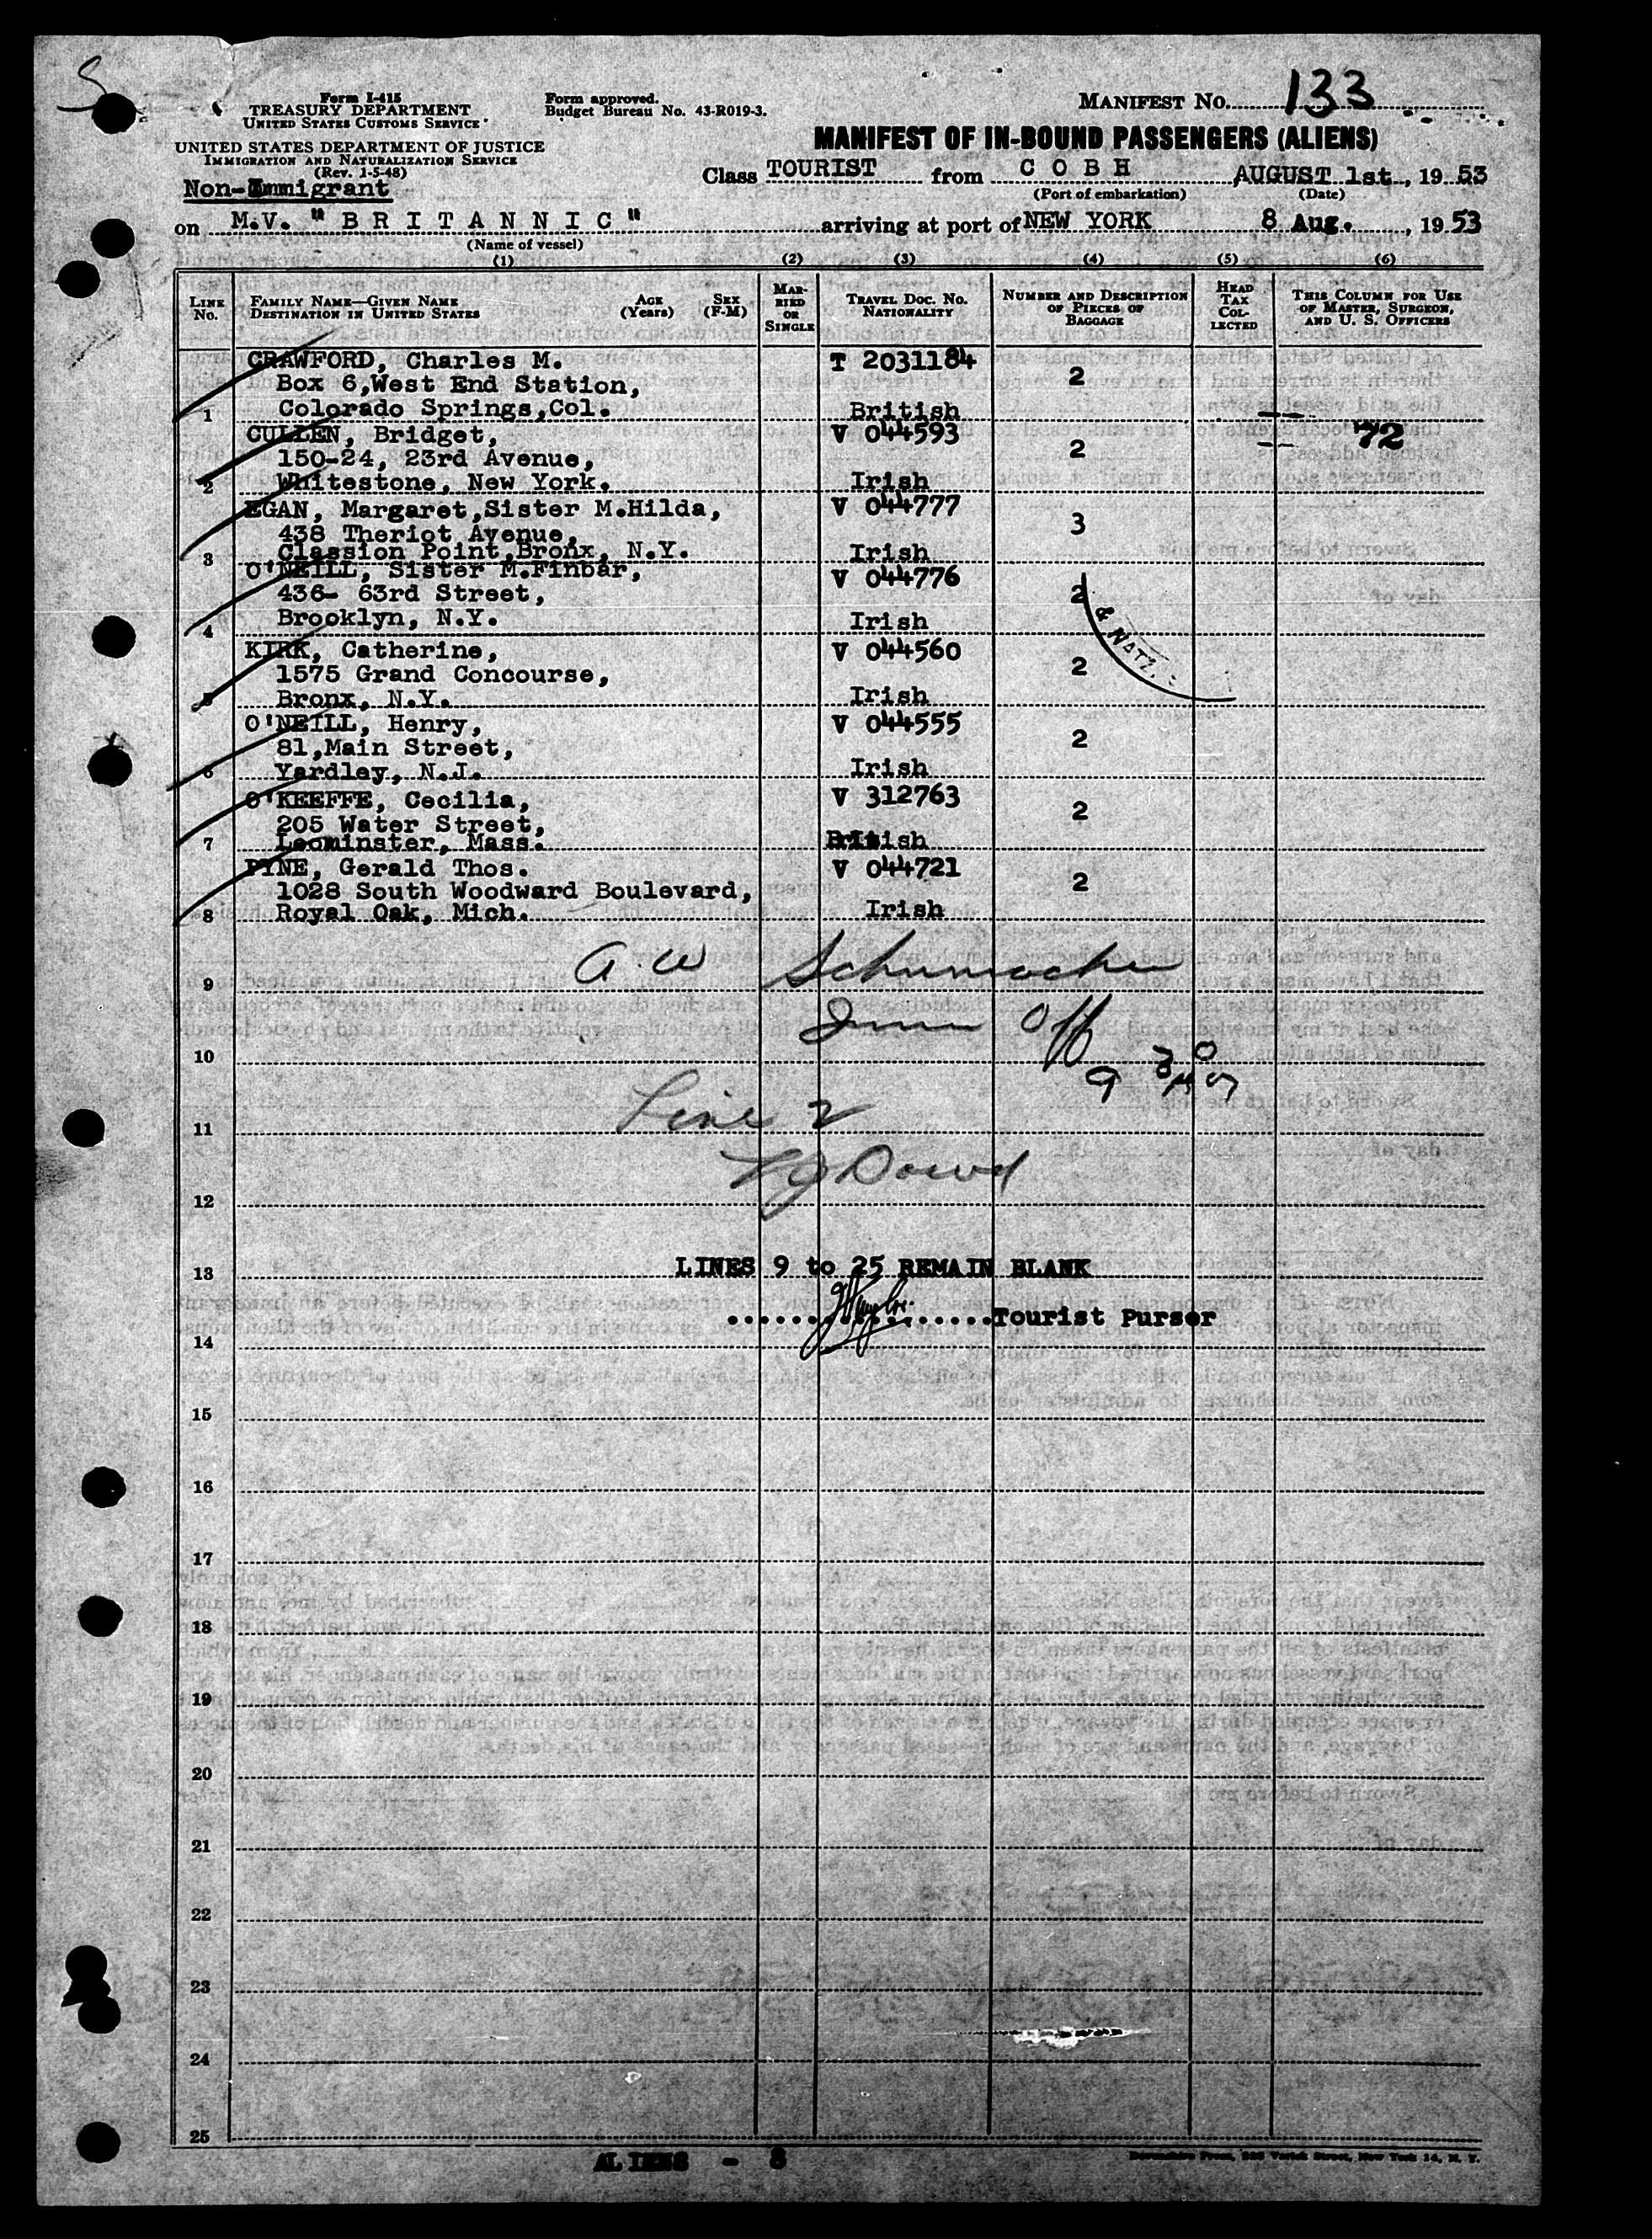 Form I-415
TREASURY DEPARTMENT
UNITED STATES CUSTOMS SERVICE
UNITED STATES DEPARTMENT OF JUSTICE
IMMIGRATION AND NATURALIZATION SERVICE
(Rev. 1-5-48)
Non-Immigrant
Form approved.
Budget Bureau No. 43-R019-3.
MANIFEST NO. 133
MANIFEST OF IN-BOUND PASSENGERS (ALIENS)
Class TOURIST from C O B H AUGUST 1st, 19 53
(Port of embarkation) (Date)
on M.V. "B R I T A N N I C" arriving at port of NEW YORK 8 Aug., 19 53
(Name of vessel)
(1) (2) (3) (4) (5) (6)
LINE NO. FAMILY NAME—GIVEN NAME DESTINATION IN UNITED STATES AGE (Years) SEX (F-M) MARRIED OR SINGLE TRAVEL DOC. NO. NATIONALITY NUMBER AND DESCRIPTION OF PIECES OF BAGGAGE HEAD TAX COLLECTED THIS COLUMN FOR USE OF MASTER, SURGEON, AND U. S. OFFICERS
CRAWFORD, Charles M. T 2031184
Box 6,West End Station, 2
1 Colorado Springs,Col. British
CULLEN, Bridget, V 044593 72
150-24, 23rd Avenue, 2
2 Whitestone, New York. Irish
EGAN, Margaret,Sister M.Hilda, V 044777
438 Theriot Avenue, 3
3 Classion Point,Bronx, N.Y. Irish
O'NEILL, Sister M.Finbar, V 044776
436- 63rd Street, 2
4 Brooklyn, N.Y. Irish
& NATZ.
KIRK, Catherine, V 044560
1575 Grand Concourse, 2
5 Bronx, N.Y. Irish
O'NEILL, Henry, V 044555
81,Main Street, 2
6 Yardley, N.J. Irish
O'KEEFFE, Cecilia, V 312763
205 Water Street, 2
7 Leominster, Mass. British
PYNE, Gerald Thos. V 044721
1028 South Woodward Boulevard, 2
8 Royal Oak, Mich. Irish
A. W Schumacher
9
Imm Off
10
Line 2
11
Dowd
12
LINES 9 to 25 REMAIN BLANK
13
Tourist Purser
14
15
16
17
18
19
20
21
22
23
24
25
ALIENS - 8
Devonshire Press, 225 Varick Street, New York 14, N. Y.